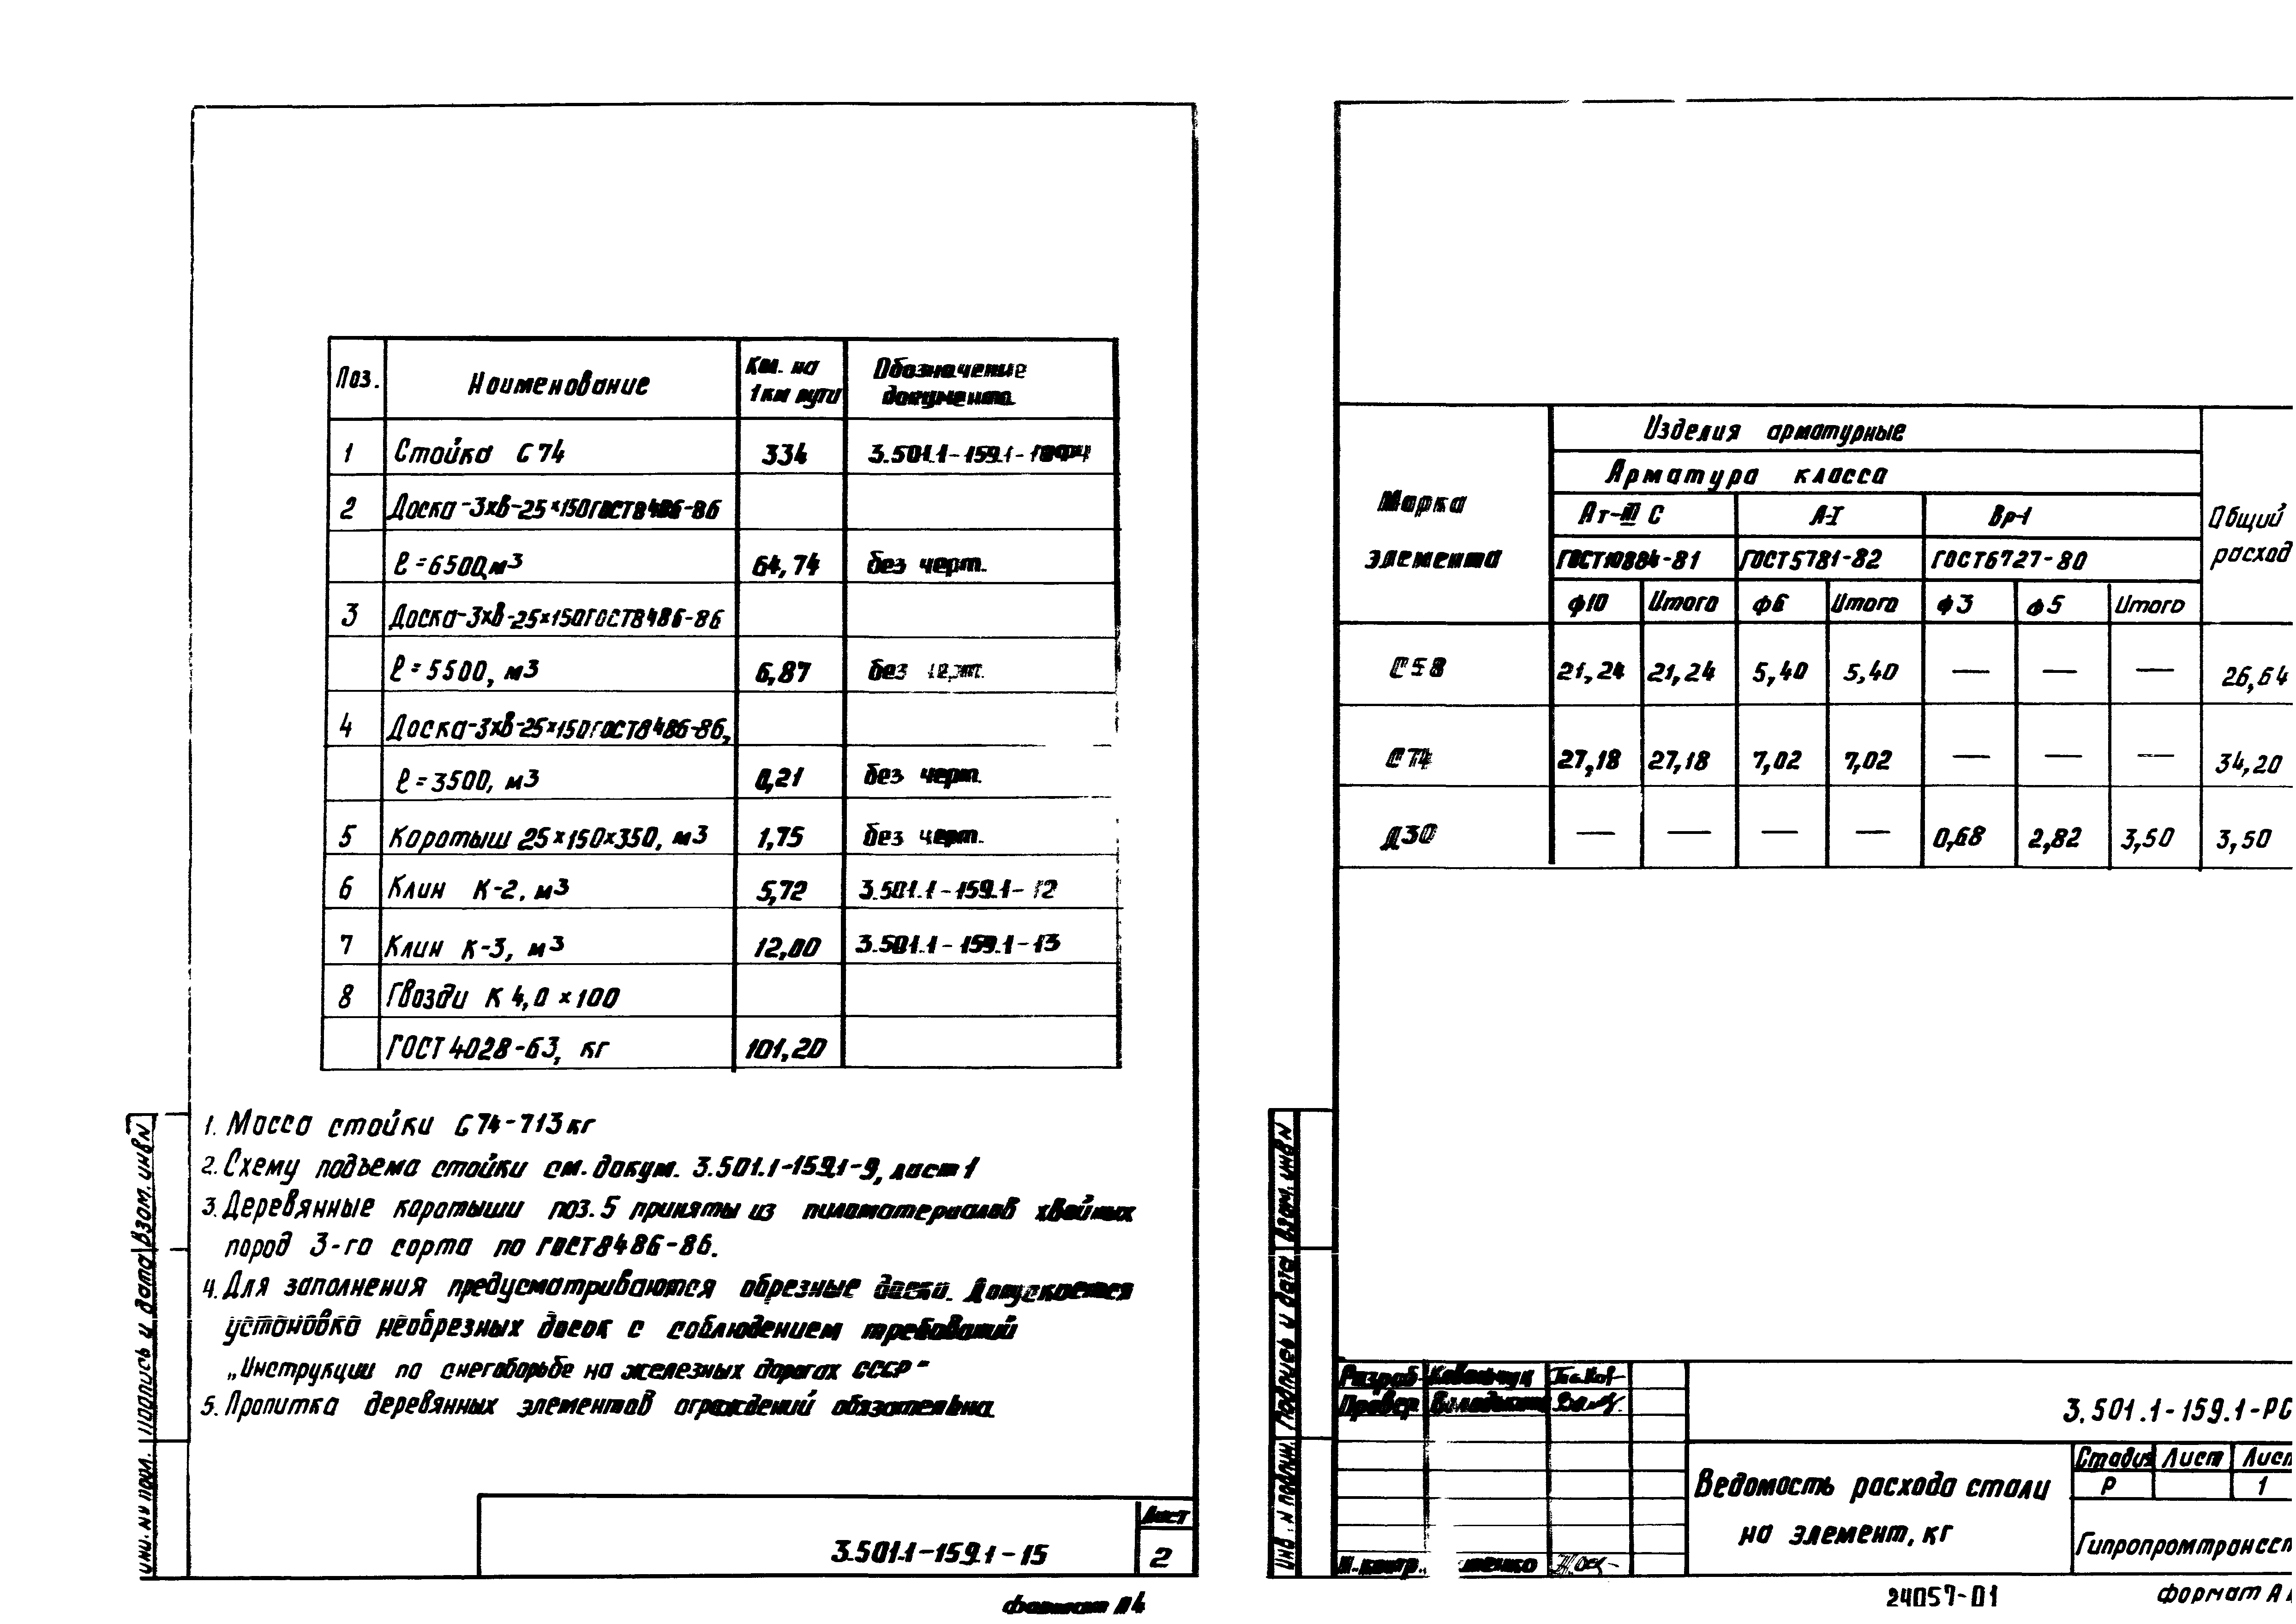 Поз. Наименование Кол. на 1 км пути Обозначение документа
1 Стойка С74 334 3.501.1-159.1-
2 Доска-3хв-25×150 ГОСТ 8486-86
ℓ=6500, м3 64,74 без черт.
3 Доска-3хв-25×150 ГОСТ 8486-86
ℓ=5500, м3 6,87 без черт.
4 Доска-3хв-25×150 ГОСТ 8486-86,
ℓ=3500, м3 0,21 без черт.
5 Коротыш 25×150×350, м3 1,75 без черт.
6 Клин К-2, м3 5,72 3.501.1-159.1-12
7 Клин К-3, м3 12,00 3.501.1-159.1-13
8 Гвозди К 4,0×100
ГОСТ 4028-63, кг 101,20
1. Масса стойки С74-713 кг
2. Схему подъема стойки см. докум. 3.501.1-159.1-9, лист 1
3. Деревянные коротыши поз. 5 приняты из пиломатериалов хвойных
пород 3-го сорта по ГОСТ 8486-86.
4. Для заполнения предусматриваются обрезные доски. Допускается
установка необрезных досок с соблюдением требований
„Инструкции по снегоборьбе на железных дорогах СССР"
5. Пропитка деревянных элементов ограждений обязательна.
Инв. № подл. Подпись и дата Взам. инв №
3.501.1-159.1-15
Лист
2
Формат А4
Марка элемента
Изделия арматурные
Арматура класса
Общий расход
Ат-III С А-I Вр-I
ГОСТ 10884-81 ГОСТ 5781-82 ГОСТ 6727-80
ф10 Итого ф6 Итого ф3 ф5 Итого
С58 21,24 21,24 5,40 5,40 — — — 26,64
С74 27,18 27,18 7,02 7,02 — — — 34,20
Д30 — — — — 0,68 2,82 3,50 3,50
Инв. № подлин. Подпись и дата Взам. инв №
Разраб. Ковальчук
Провер.
Н.контр.
3.501.1-159.1-РС
Ведомость расхода стали
на элемент, кг
Стадия Лист Лист
Р 1
Гипропромтрансст
24057-01
Формат А